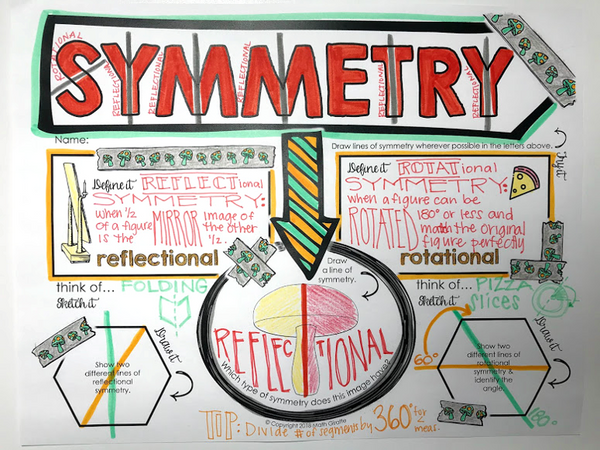 SYMMETRY
ROTATIONAL
REFLECTIONAL
REFLECTIONAL
REFLECTIONAL
REFLECTIONAL
REFLECTIONAL
Name:
Draw lines of symmetry wherever possible in the letters above.
Try it!
Define it REFLECTional
SYMMETRY:
when 1/2
of a figure
is the
MIRROR
image of
the other
1/2.
reflectional
think of...
FOLDING
Sketch it
Define it ROTATional
SYMMETRY:
when a figure can be
ROTATED 180° or less and
match the original
figure perfectly
rotational
think of...
PIZZA
slices
Sketch it
Draw
a line of
symmetry.
REFLECTIONAL
Which type of symmetry does this image have?
© Copyright 2018 Math Giraffe
Draw it
Show two
different lines of
reflectional
symmetry.
Draw it
Show two
different lines of
rotational
symmetry &
identify the
angle.
60°
180°
TIP: Divide # of segments by 360° for
∠ meas.